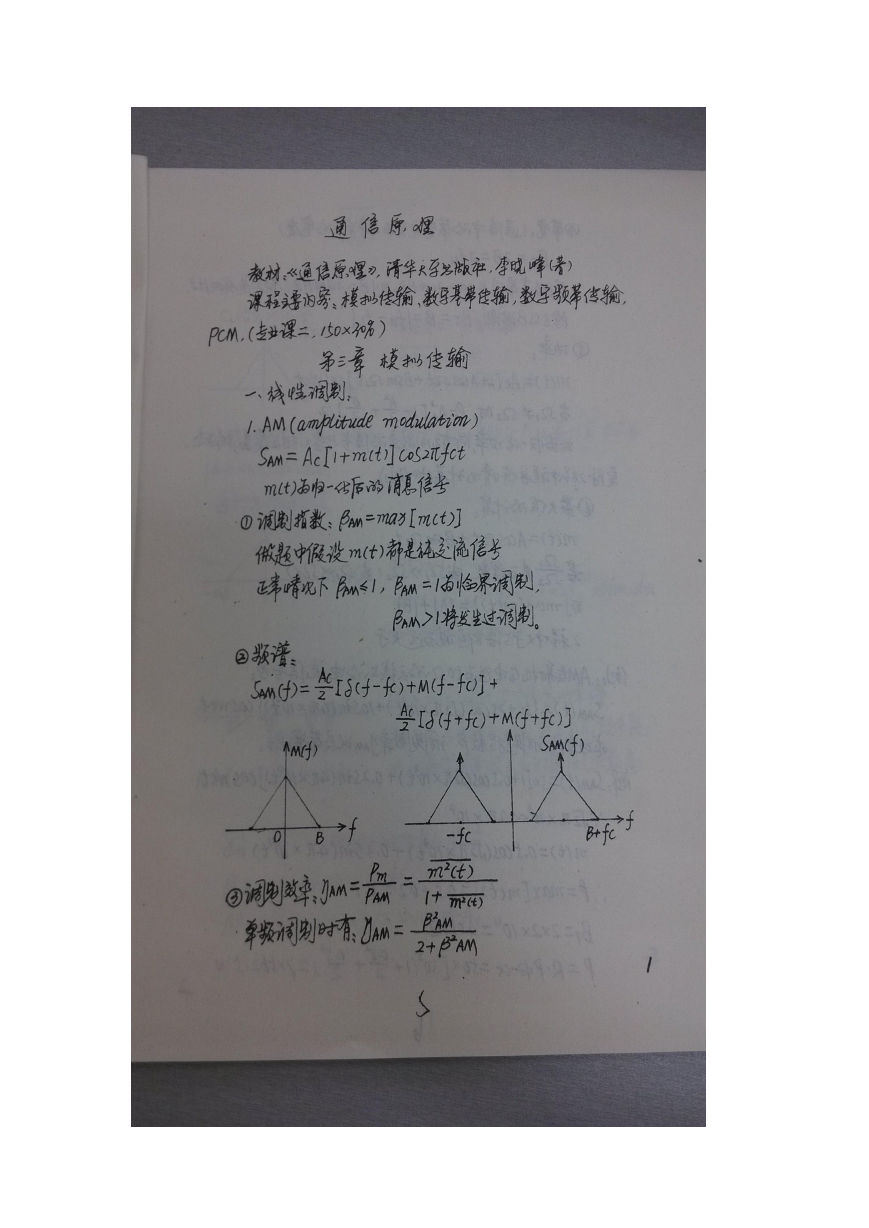 通信原理
教材:《通信原理》,清华大学出版社,李晓峰(著)
课程主要内容:模拟传输、数字基带传输,数字频带传输,
PCM,(专业课二,150×30%)
第三章 模拟传输
一、线性调制:
1. AM(amplitude modulation)
SAM = Ac[1+m(t)]cos2πfct
m(t)为归一化后的消息信号
①调制指数:βAM=max[m(t)]
做题中假设m(t)都是纯交流信号
正常情况下 βAM≤1, βAM=1为临界调制,
βAM>1将发生过调制。
②频谱:
SAM(f)= Ac/2 [δ(f-fc)+M(f-fc)]+
Ac/2 [δ(f+fc)+M(f+fc)]
M(f) SAM(f)
0 B f -fc B+fc f
③调制效率:ηAM= Pm/PAM = m²(t)‾ / (1+ m²(t)‾)
单频调制时有:ηAM= β²AM / (2+β²AM)
1